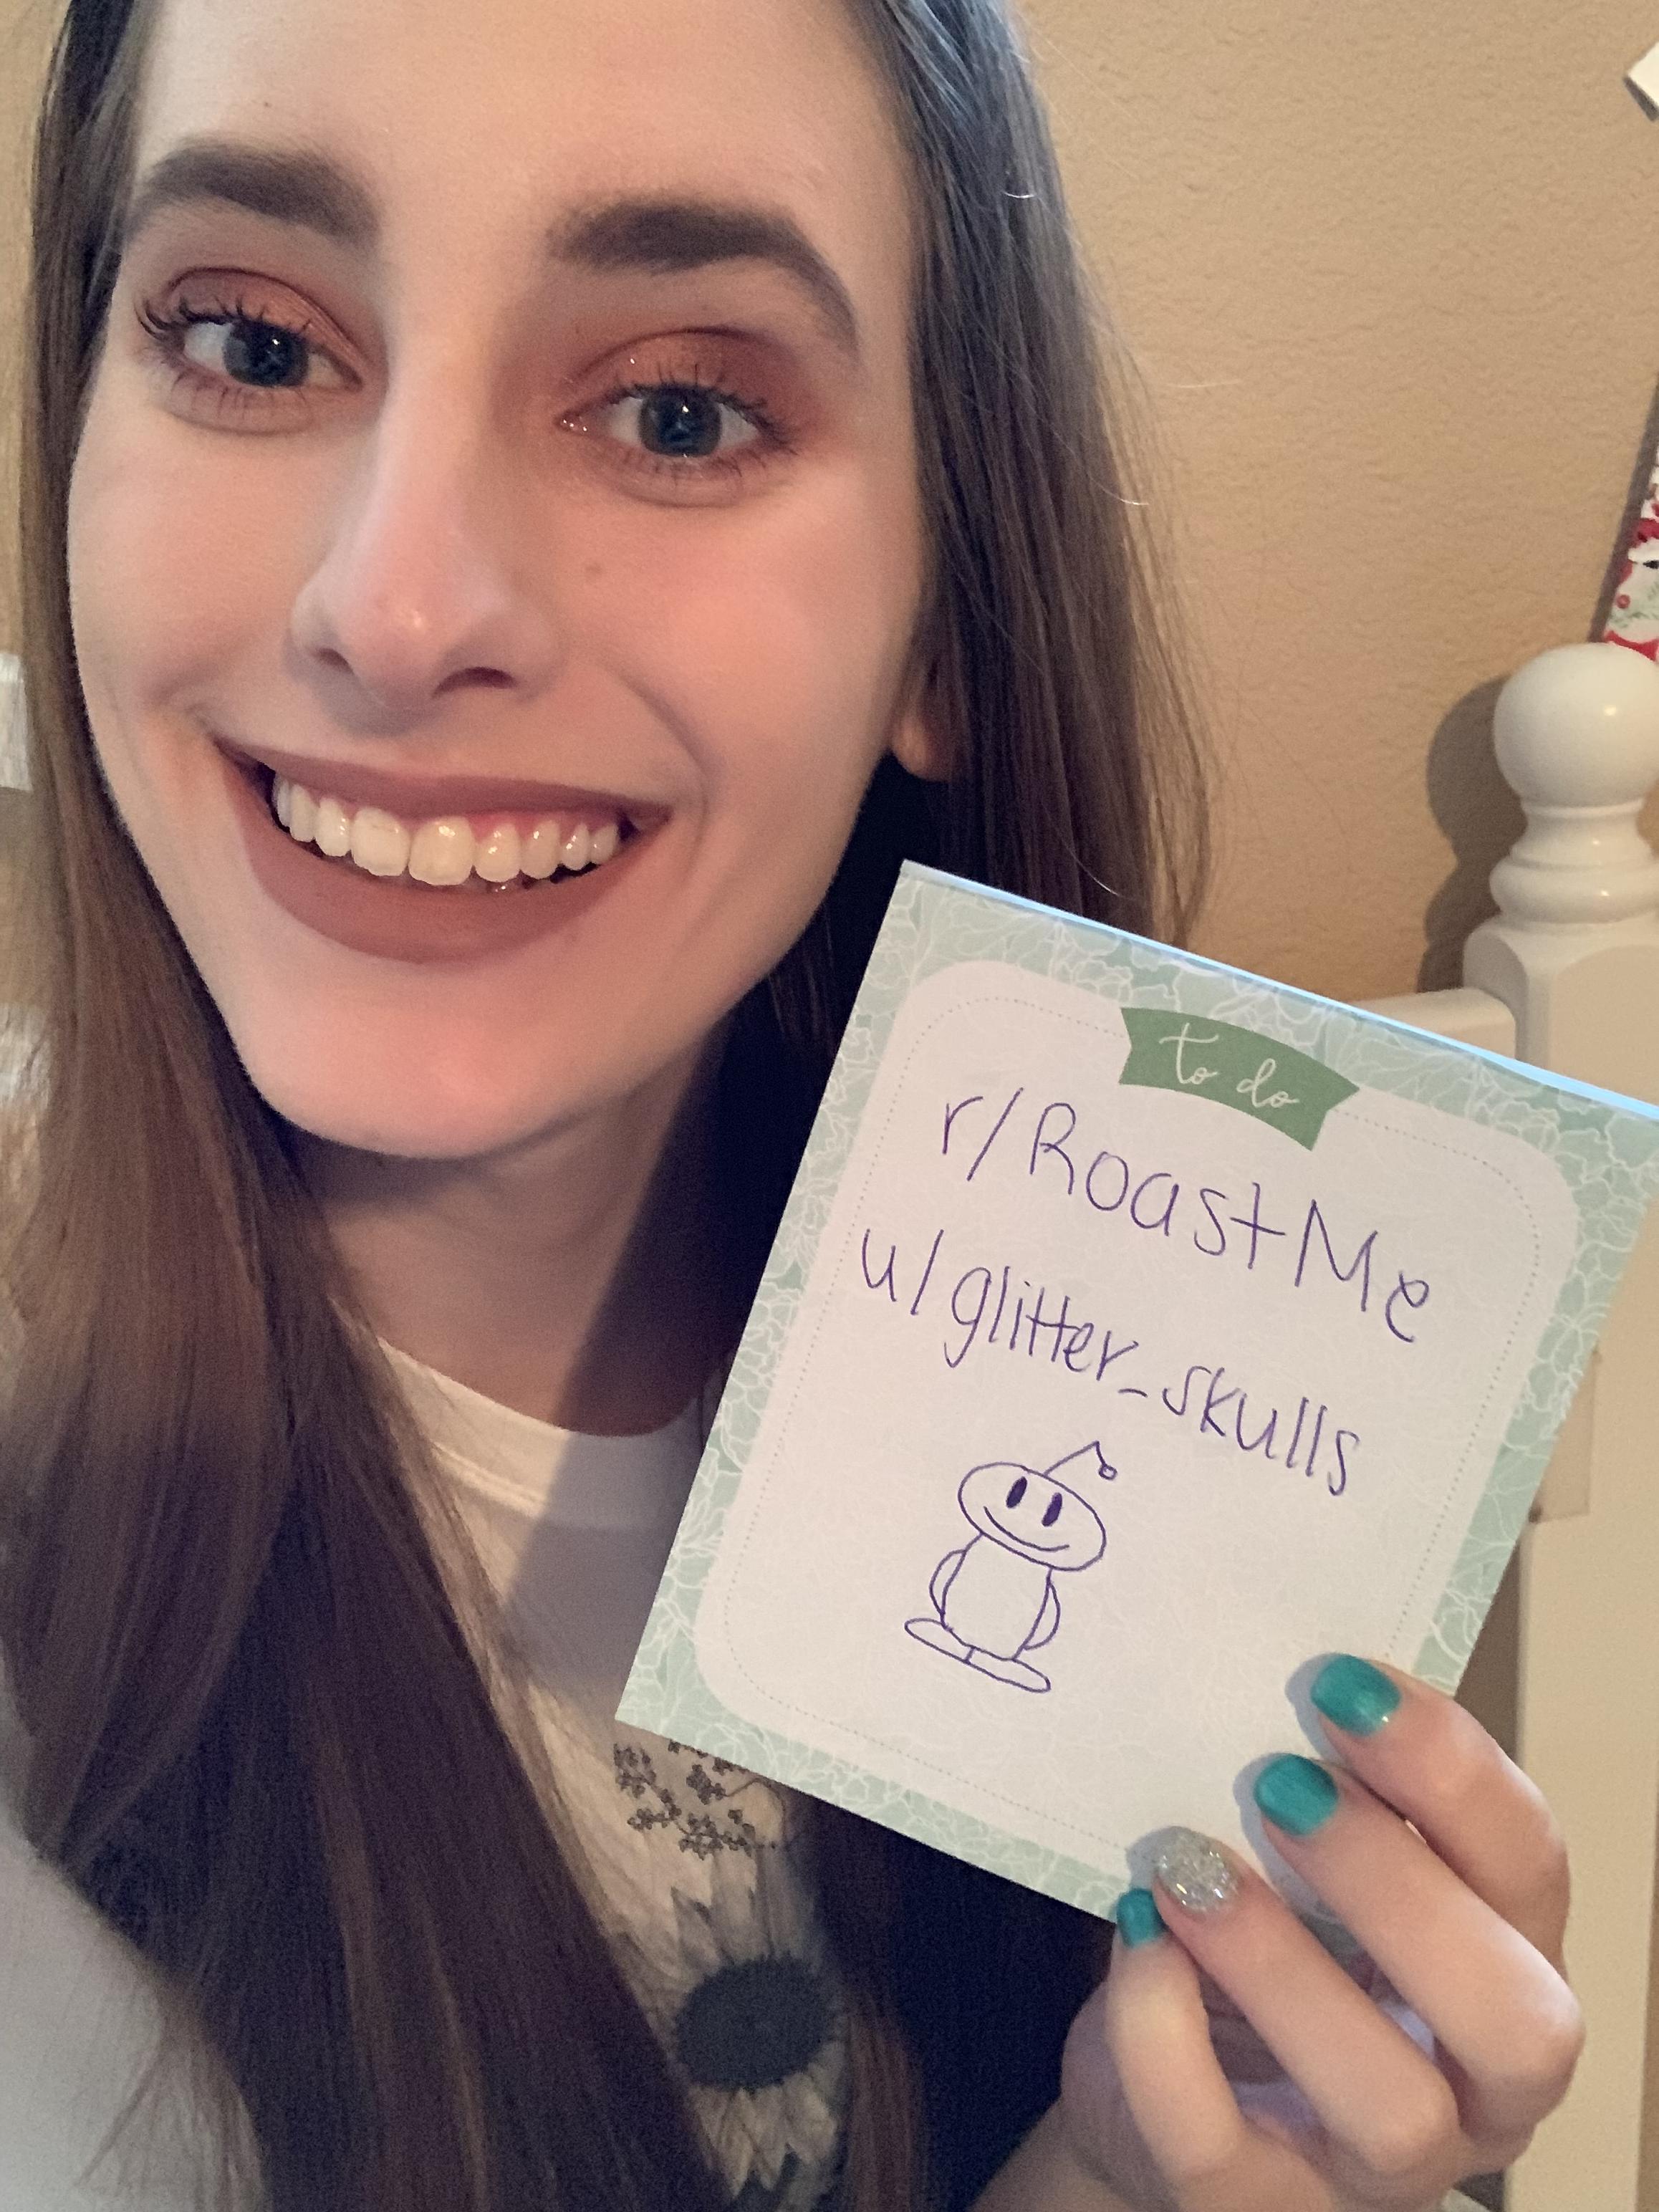 to do
r/RoastMe
u/glitter_skulls